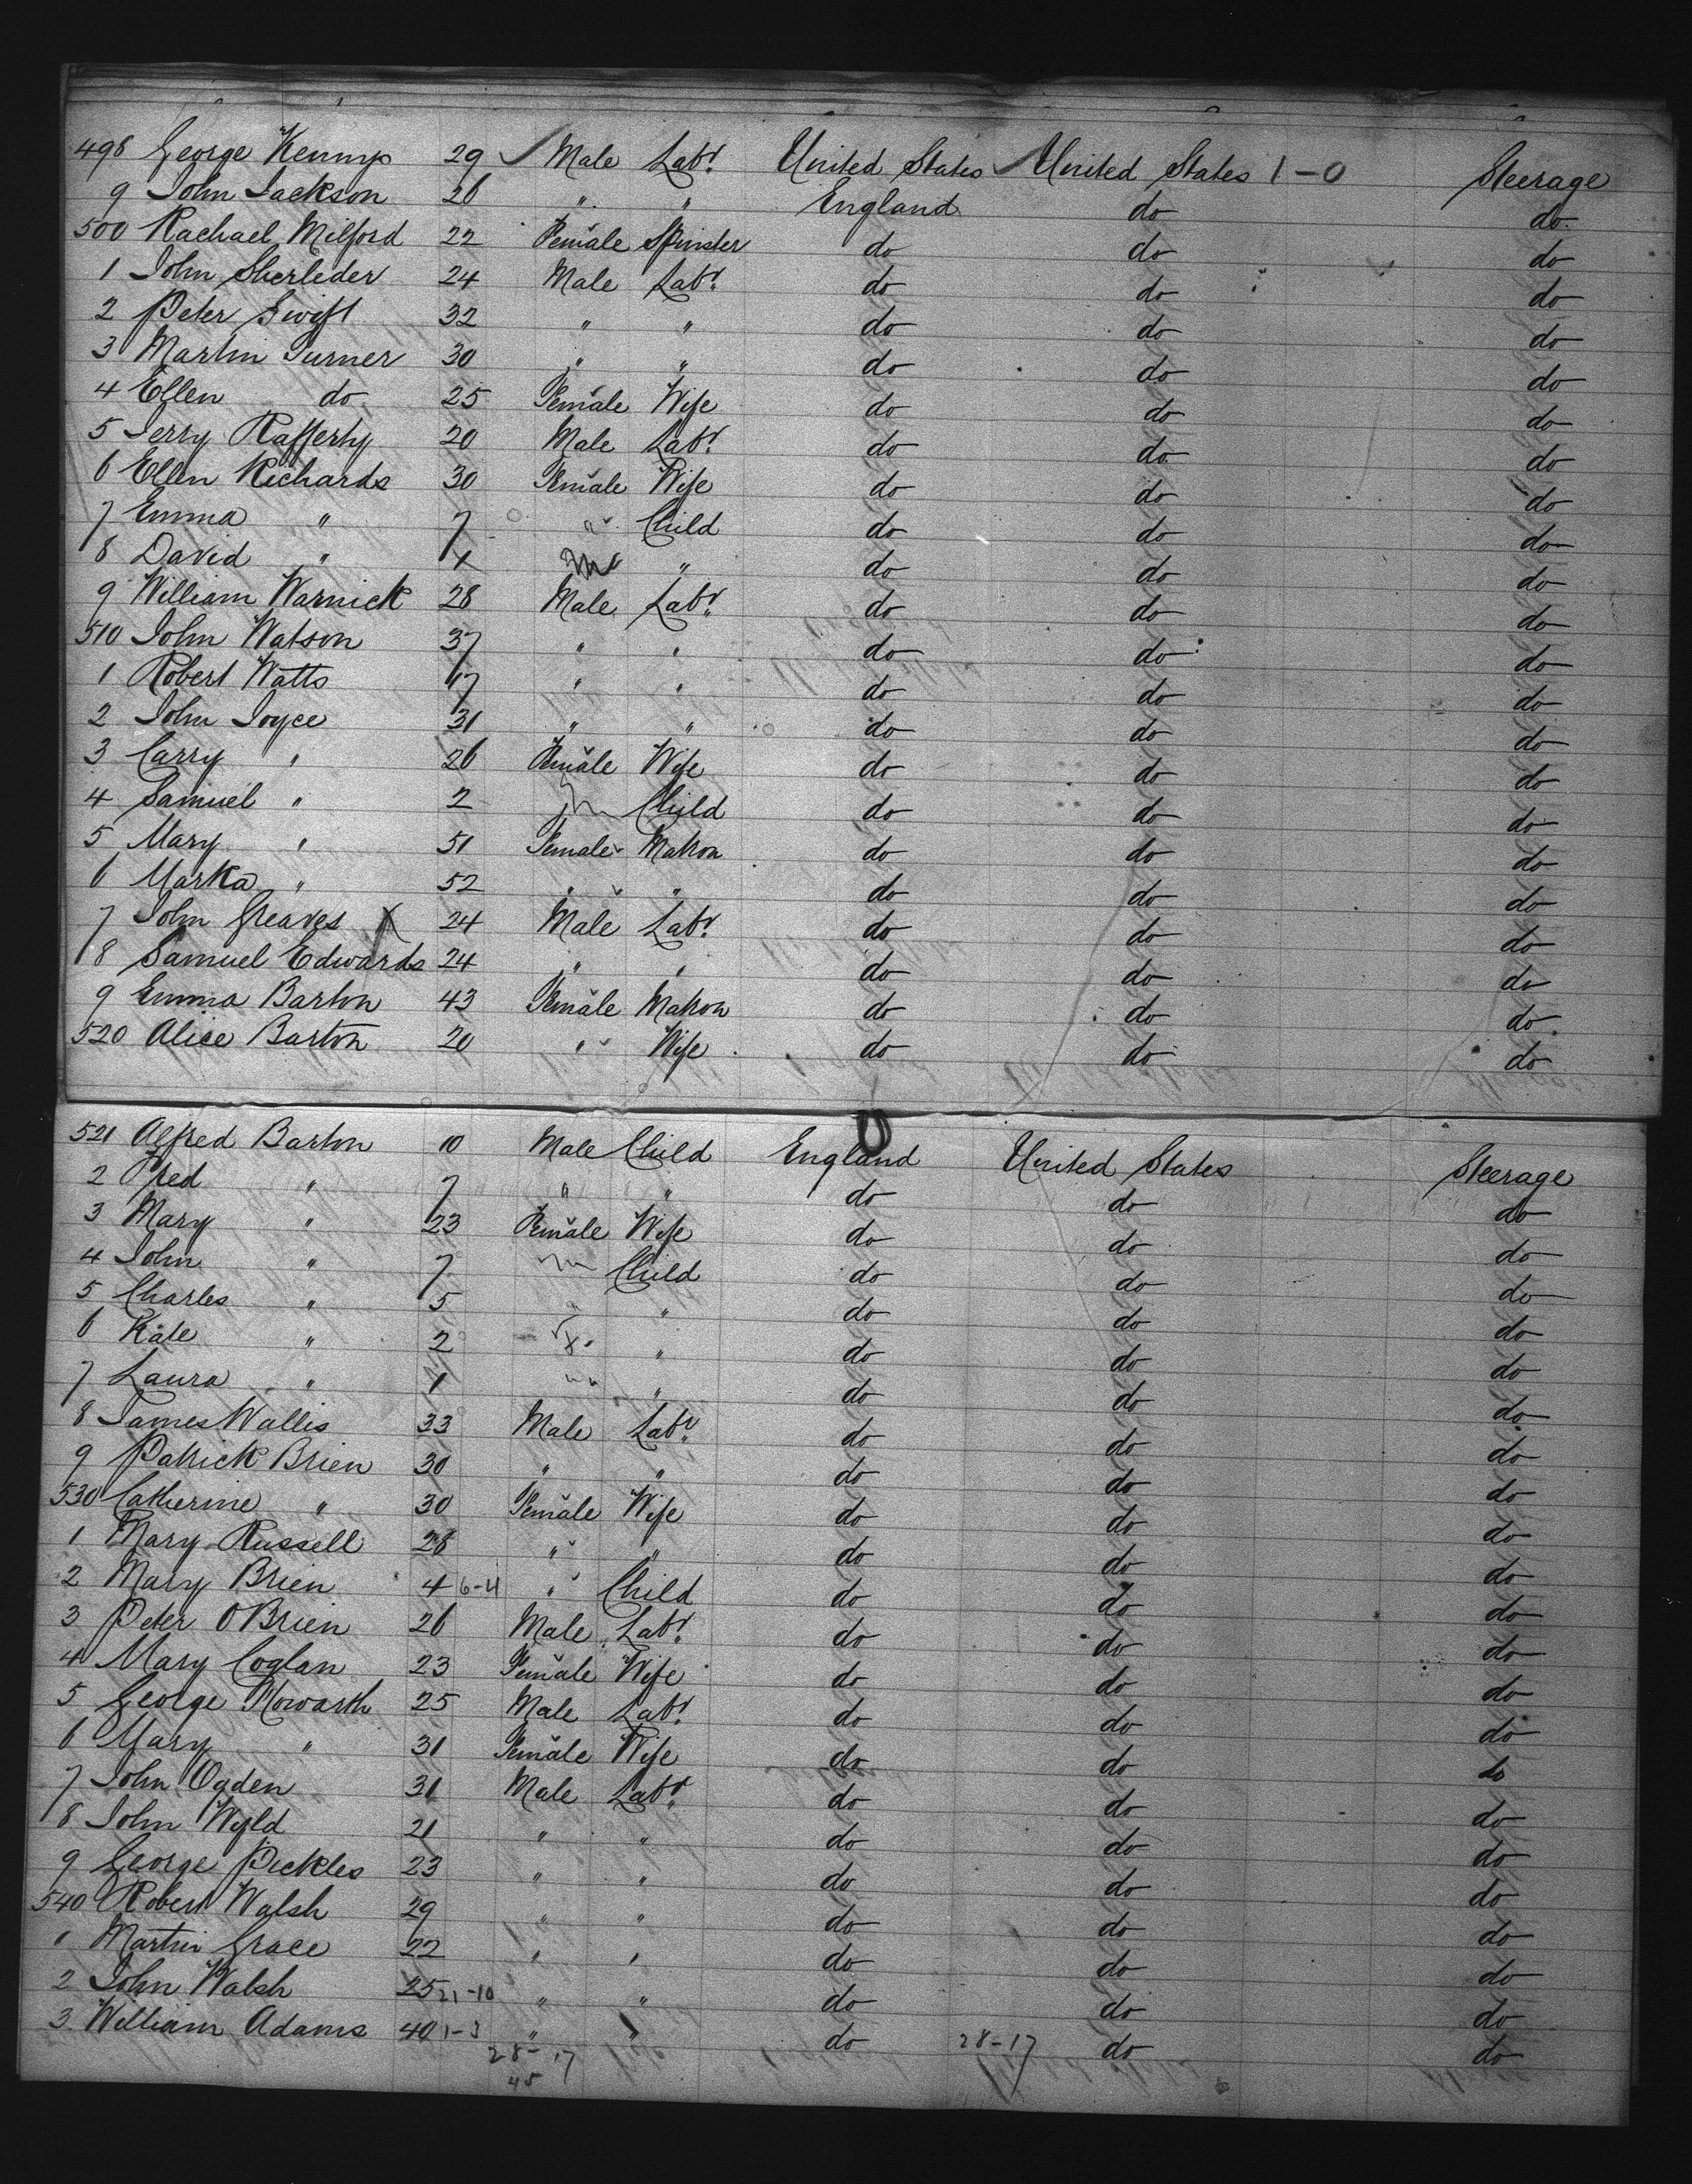 498 George Kemmp 29 ✓ Male Labr. United States ✓ United States 1-0 Steerage
9 John Jackson 26 " " England do do.
500 Rachael Milford 22 Female Spinster do do do
1 John Sherleder 24 Male Labr. do do do
2 Peter Swift 32 " " do do do
3 Martin Turner 30 " " do do do
4 Ellen do 25 Female Wife do do do
5 Jerry Rafferty 20 Male Labr. do do do
6 Ellen Richards 30 Female Wife do do do
7 Emma " 7 " Child do do do
8 David " 4 m " do do do
9 William Warnick 28 Male Labr. do do do
510 John Watson 37 " " do do do
1 Robert Watts 17 " " do do do
2 John Joyce 31 " " do do do
3 Carry " 26 Female Wife do do do
4 Samuel " 2 m Child do do do
5 Mary " 51 Female Matron do do do
6 Marka " 52 " " do do do
7 John Greaves X 24 Male Labr. do do do
18 Samuel Edwards 24 " " do do do
9 Emma Barton 43 Female Matron do do do
520 Alice Barton 20 " Wife do do do
521 Alfred Barton 10 Male Child England United States Steerage
2 Fred " 7 " " do do do
3 Mary " 23 Female Wife do do do
4 John " 7 m Child do do do
5 Charles " 5 " " do do do
6 Kate " 2 " do do do
7 Laura " 1 " " do do do
8 James Wallis 33 Male Labr. do do do
9 Patrick Brien 30 " " do do do
530 Catherine " 30 Female Wife do do do
1 Mary Russell 28 " " do do do
2 Mary Brien 4 6-4 " Child do do do
3 Peter OBrien 26 Male Labr. do do do
4 Mary Coglan 23 Female Wife do do do
5 George Howarth 25 Male Labr. do do do
6 Mary " 31 Female Wife do do do
7 John Ogden 31 Male Labr. do do do
8 John Wyld 21 " " do do do
9 George Pickles 23 " " do do do
540 Robert Walsh 29 " " do do do
1 Martin Grace 22 " " do do do
2 John Walsh 25 21-10 " " do do do
3. William Adams 40 1-3 " " do 28-17 do do
28-17
45